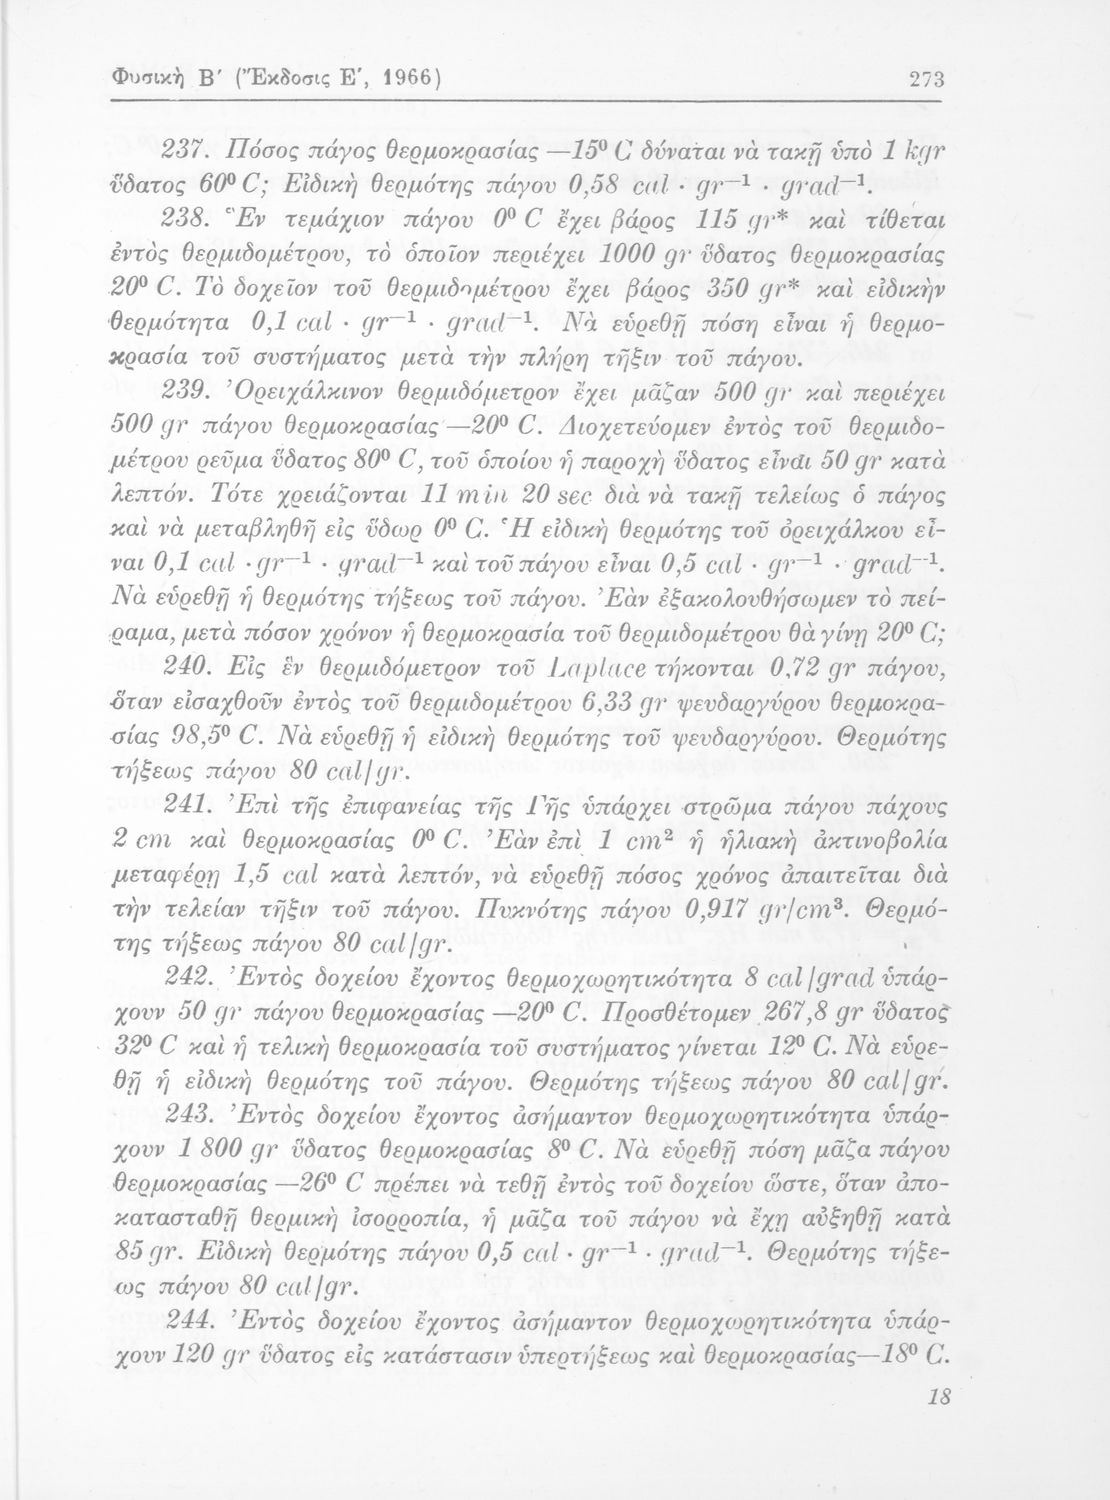 Φυσικὴ Β′ (Ἔκδοσις Ε′, 1966) 273
237. Πόσος πάγος θερμοκρασίας —15⁰ C δύναται νὰ τακῇ ὑπὸ 1 kgr
ὕδατος 60⁰ C; Εἰδικὴ θερμότης πάγου 0,58 cal · gr⁻¹ · grad⁻¹.
238. Ἓν τεμάχιον πάγου 0⁰ C ἔχει βάρος 115 gr* καὶ τίθεται
ἐντὸς θερμιδομέτρου, τὸ ὁποῖον περιέχει 1000 gr ὕδατος θερμοκρασίας
20⁰ C. Τὸ δοχεῖον τοῦ θερμιδομέτρου ἔχει βάρος 350 gr* καὶ εἰδικὴν
θερμότητα 0,1 cal · gr⁻¹ · grad⁻¹. Νὰ εὑρεθῇ πόση εἶναι ἡ θερμο-
κρασία τοῦ συστήματος μετὰ τὴν πλήρη τῆξιν τοῦ πάγου.
239. Ὀρειχάλκινον θερμιδόμετρον ἔχει μᾶζαν 500 gr καὶ περιέχει
500 gr πάγου θερμοκρασίας —20⁰ C. Διοχετεύομεν ἐντὸς τοῦ θερμιδο-
μέτρου ρεῦμα ὕδατος 80⁰ C, τοῦ ὁποίου ἡ παροχὴ ὕδατος εἶναι 50 gr κατὰ
λεπτόν. Τότε χρειάζονται 11 min 20 sec διὰ νὰ τακῇ τελείως ὁ πάγος
καὶ νὰ μεταβληθῇ εἰς ὕδωρ 0⁰ C. Ἡ εἰδικὴ θερμότης τοῦ ὀρειχάλκου εἶ-
ναι 0,1 cal · gr⁻¹ · grad⁻¹ καὶ τοῦ πάγου εἶναι 0,5 cal · gr⁻¹ · grad⁻¹.
Νὰ εὑρεθῇ ἡ θερμότης τήξεως τοῦ πάγου. Ἐὰν ἐξακολουθήσωμεν τὸ πεί-
ραμα, μετὰ πόσον χρόνον ἡ θερμοκρασία τοῦ θερμιδομέτρου θὰ γίνῃ 20⁰ C;
240. Εἰς ἓν θερμιδόμετρον τοῦ Laplace τήκονται 0,72 gr πάγου,
ὅταν εἰσαχθοῦν ἐντὸς τοῦ θερμιδομέτρου 6,33 gr ψευδαργύρου θερμοκρα-
σίας 98,5⁰ C. Νὰ εὑρεθῇ ἡ εἰδικὴ θερμότης τοῦ ψευδαργύρου. Θερμότης
τήξεως πάγου 80 cal/gr.
241. Ἐπὶ τῆς ἐπιφανείας τῆς Γῆς ὑπάρχει στρῶμα πάγου πάχους
2 cm καὶ θερμοκρασίας 0⁰ C. Ἐὰν ἐπὶ 1 cm² ἡ ἡλιακὴ ἀκτινοβολία
μεταφέρῃ 1,5 cal κατὰ λεπτόν, νὰ εὑρεθῇ πόσος χρόνος ἀπαιτεῖται διὰ
τὴν τελείαν τῆξιν τοῦ πάγου. Πυκνότης πάγου 0,917 gr/cm³. Θερμό-
της τήξεως πάγου 80 cal/gr.
242. Ἐντὸς δοχείου ἔχοντος θερμοχωρητικότητα 8 cal/grad ὑπάρ-
χουν 50 gr πάγου θερμοκρασίας —20⁰ C. Προσθέτομεν 267,8 gr ὕδατος
32⁰ C καὶ ἡ τελικὴ θερμοκρασία τοῦ συστήματος γίνεται 12⁰ C. Νὰ εὑρε-
θῇ ἡ εἰδικὴ θερμότης τοῦ πάγου. Θερμότης τήξεως πάγου 80 cal/gr.
243. Ἐντὸς δοχείου ἔχοντος ἀσήμαντον θερμοχωρητικότητα ὑπάρ-
χουν 1 800 gr ὕδατος θερμοκρασίας 8⁰ C. Νὰ εὑρεθῇ πόση μᾶζα πάγου
θερμοκρασίας —26⁰ C πρέπει νὰ τεθῇ ἐντὸς τοῦ δοχείου ὥστε, ὅταν ἀπο-
κατασταθῇ θερμικὴ ἰσορροπία, ἡ μᾶζα τοῦ πάγου νὰ ἔχῃ αὐξηθῇ κατὰ
85 gr. Εἰδικὴ θερμότης πάγου 0,5 cal · gr⁻¹ · grad⁻¹. Θερμότης τήξε-
ως πάγου 80 cal/gr.
244. Ἐντὸς δοχείου ἔχοντος ἀσήμαντον θερμοχωρητικότητα ὑπάρ-
χουν 120 gr ὕδατος εἰς κατάστασιν ὑπερτήξεως καὶ θερμοκρασίας—18⁰ C.
18